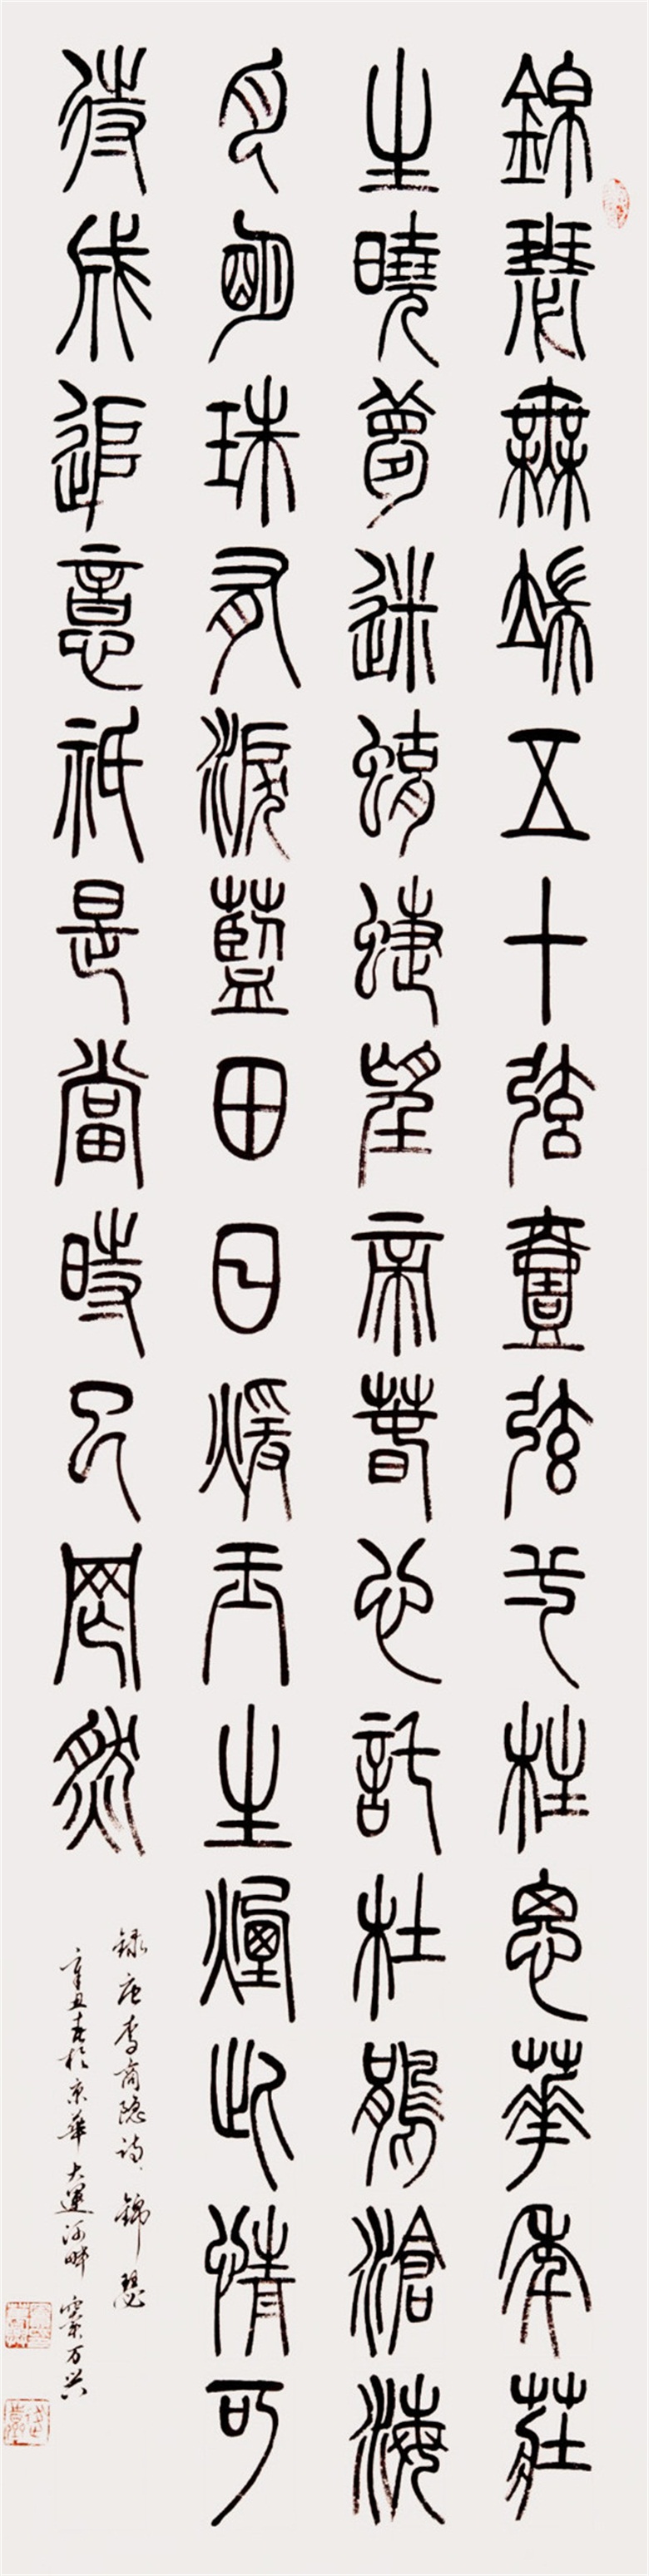 錦瑟無端五十弦壹弦一柱思華年莊
生曉夢迷蝴蝶望帝春心託杜鵑滄海
月明珠有淚藍田日煖玉生煙此情可
待成追意祇是當時已罔然
録唐李商隐詩 錦瑟
辛丑春於京華大運河畔 万兴